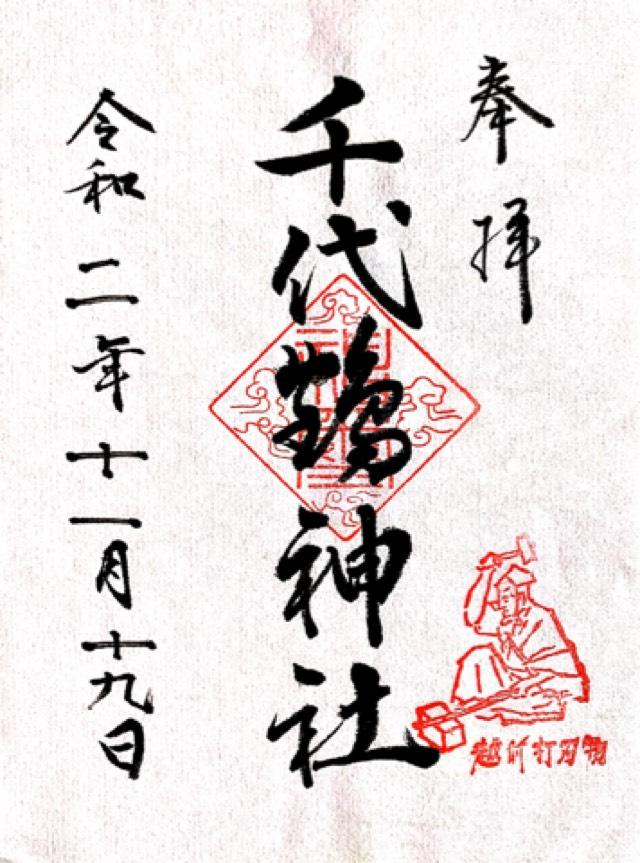 奉拝
千代鶴神社
令和二年十一月十九日
越前打刃物